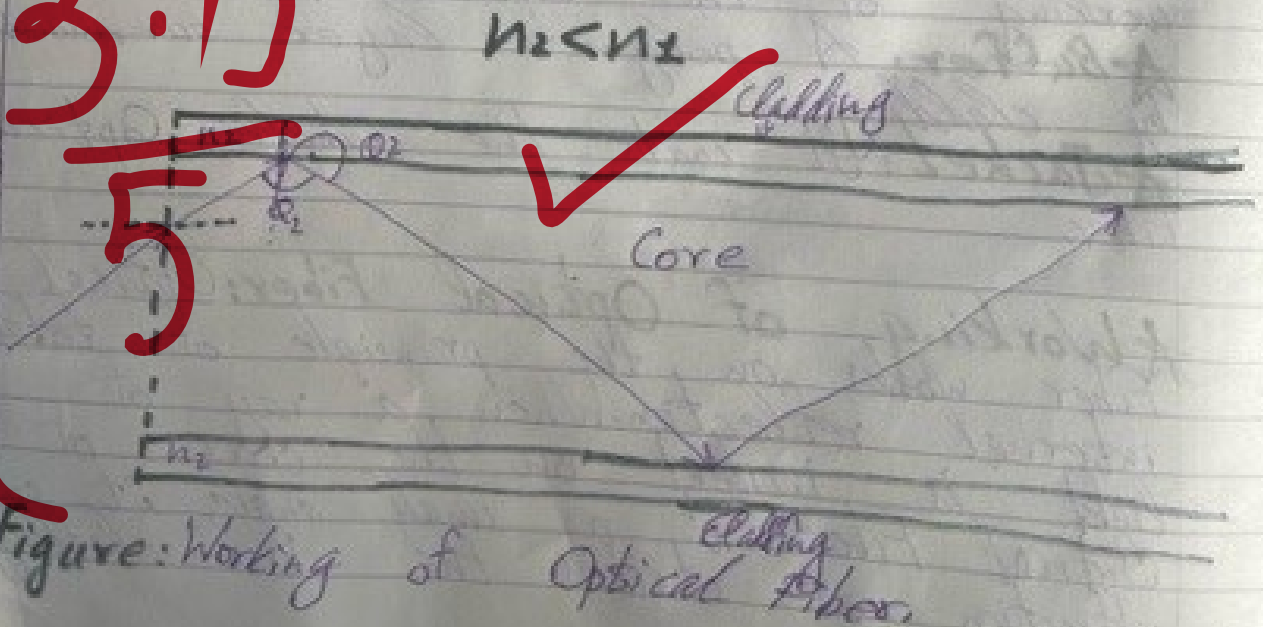 n₂<n₁
Cladding
n₂
θ₂
θ₂
5
Core
n₂
Cladding
Figure: Working of Optical Fiber.